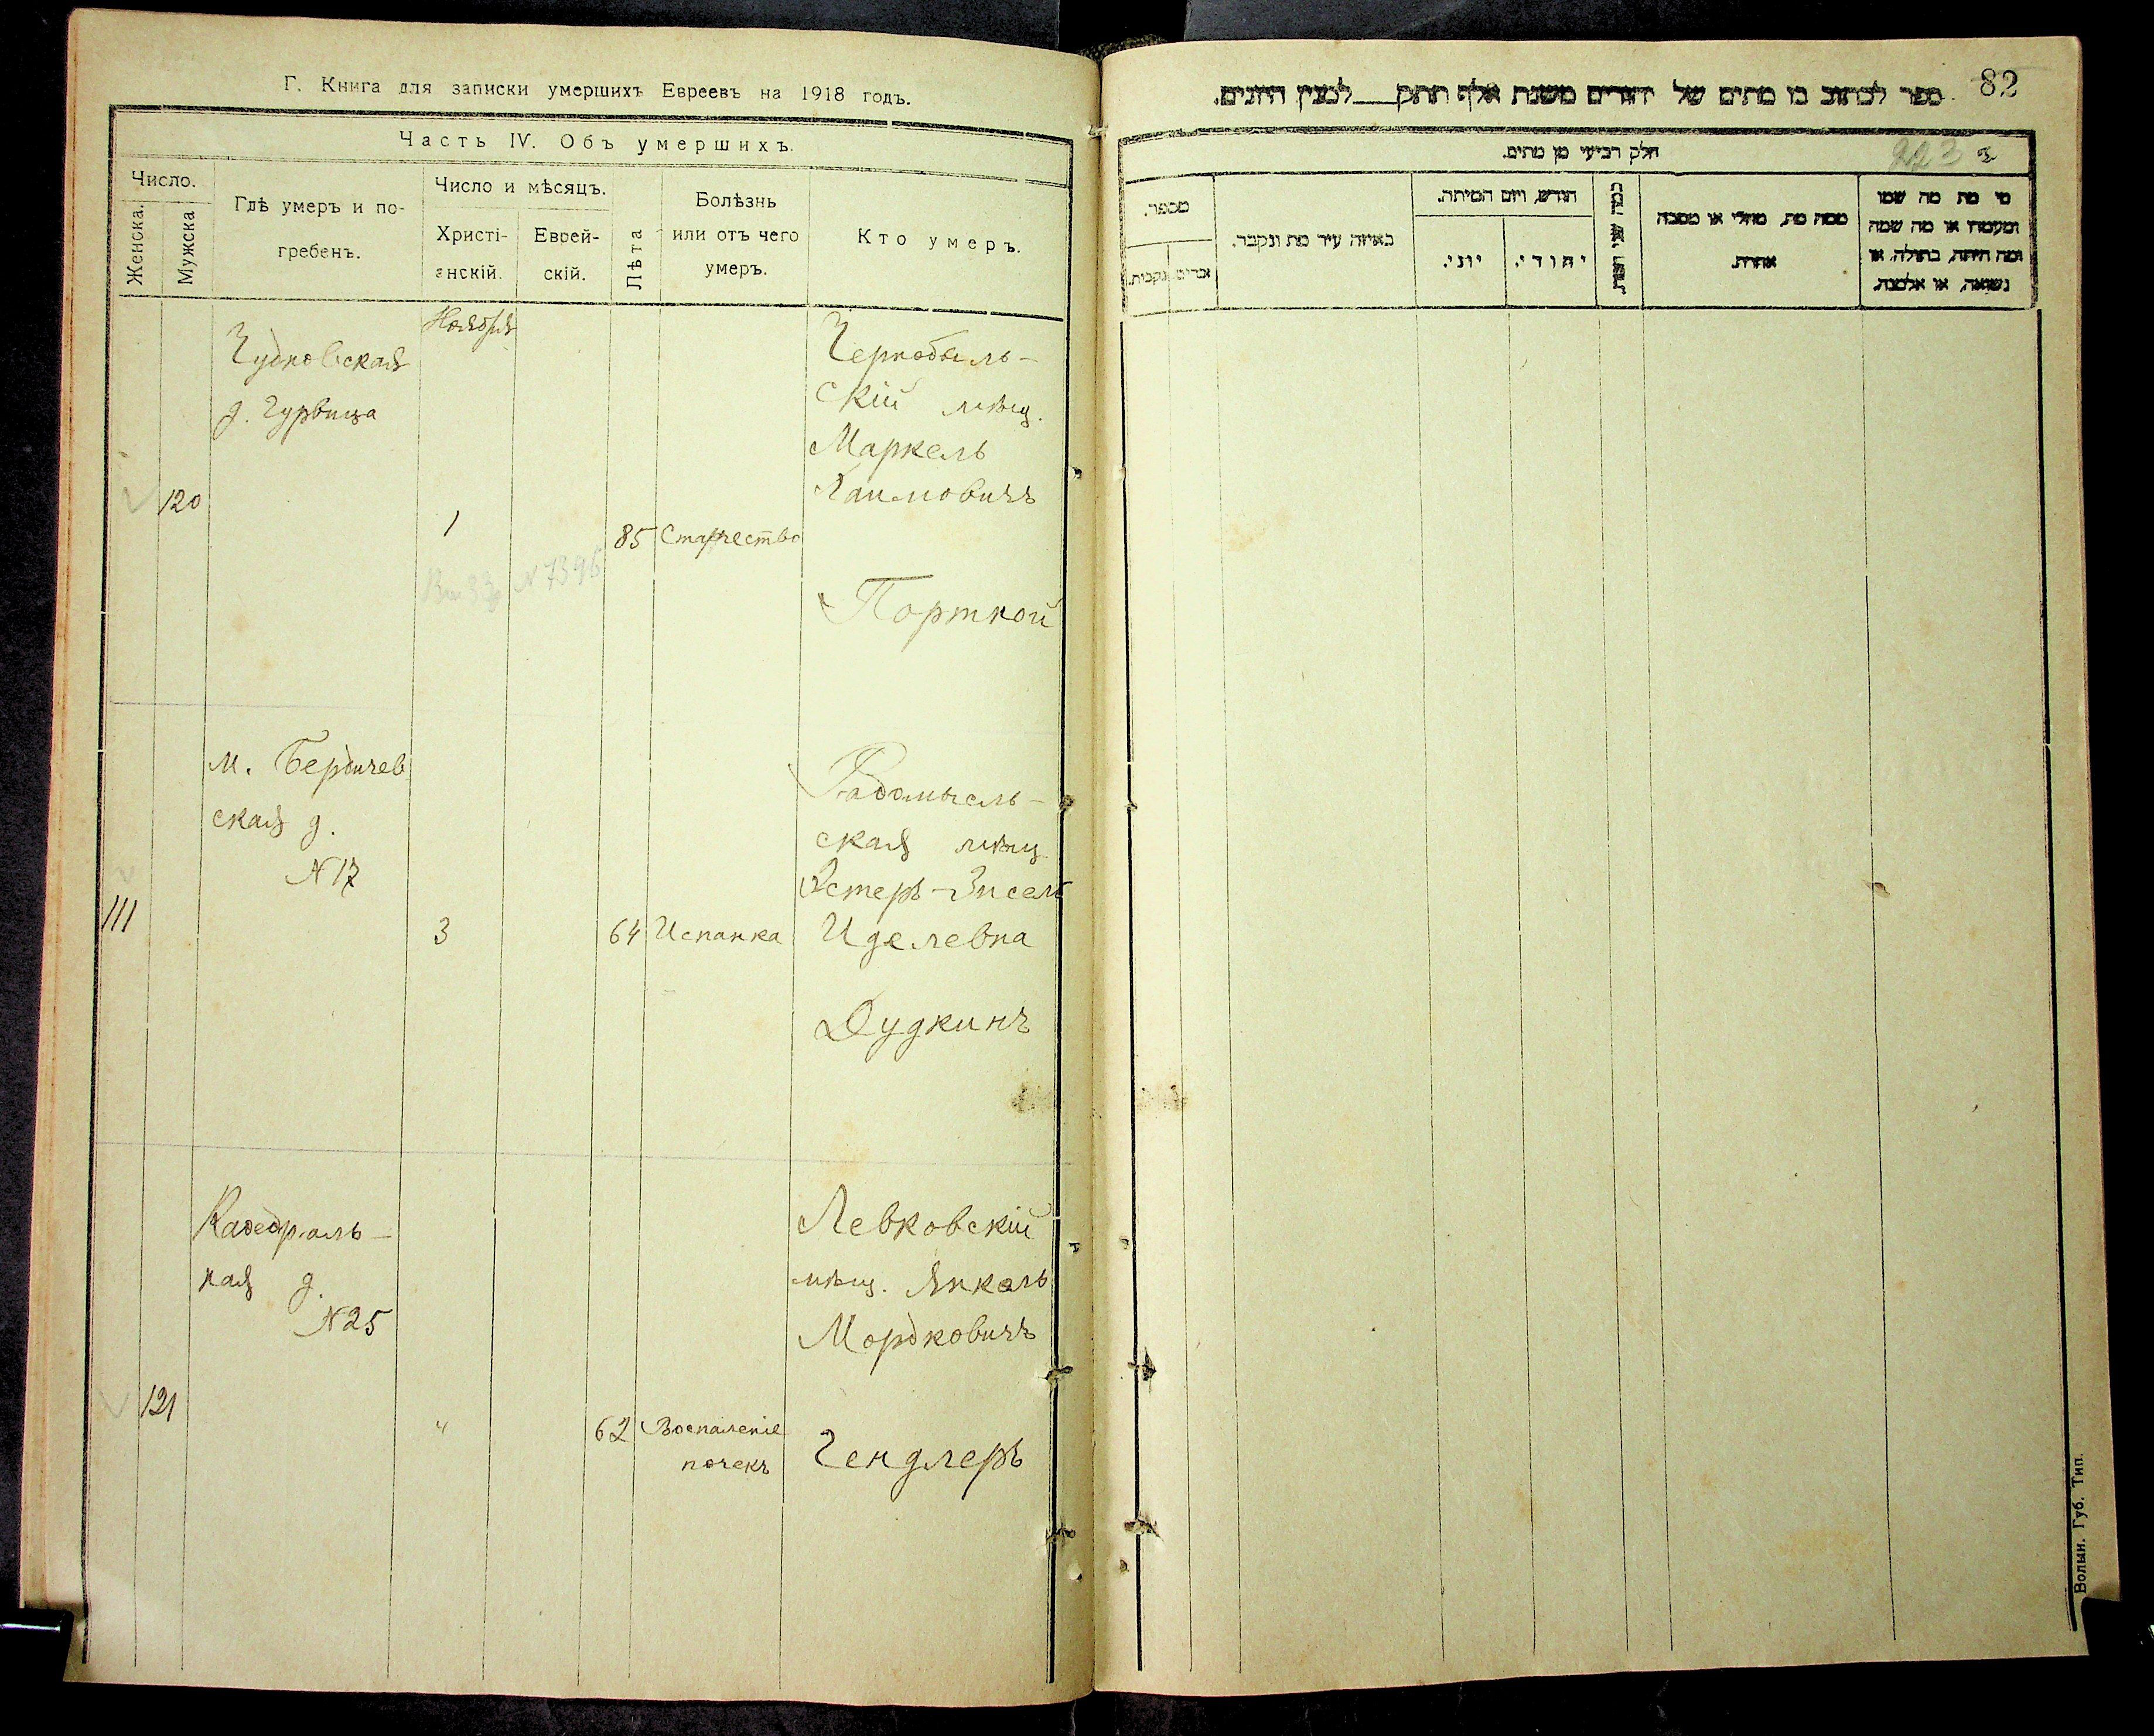 Г. Книга для записки умершихъ Евреевъ на 1918 годъ.
Часть IV. Объ умершихъ.
Число.
Женска.
Мужска
Гдѣ умеръ и по-
гребенъ.
Число и мѣсяцъ.
Христі-
анскій.
Еврей-
скій.
Лѣта
Болѣзнь
или отъ чего
умеръ.
Кто умеръ.
Ноября
Чудновская
д. Гурвица
120
1
85
Старчество
Чернобыль-
скій мѣщ.
Маркель
Хаимовичъ
Портной
N 7396
м. Бердичев
ская д.
N 17
111
3
64
Испанка
Радомысль-
ская мѣщ.
Эстеръ-Зисель
Иделевна
Дудкинъ
Кафедраль-
ная д.
N 25
121
"
62
Воспаленіе
почекъ
Левковскій
мѣщ. Янкель
Мордковичъ
Гендлеръ
82
ספר לכתוב בו מתים של יהודים משנת אלף תתק___למנין היונים.
חלק רביעי מן מתים.
223
מספר.
זכרים
נקבות.
באיזה עיר מת ונקבר.
חודש ויום המיתה.
יוני.
יהודי.
כמה שני
ממה מת, מחלי או מסבה
אחרת.
מי מת מה שמו
ומעמדו או מה שמה
ומה היתה, בתולה, או
נשואה, או אלמנה.
Волын. Губ. Тип.